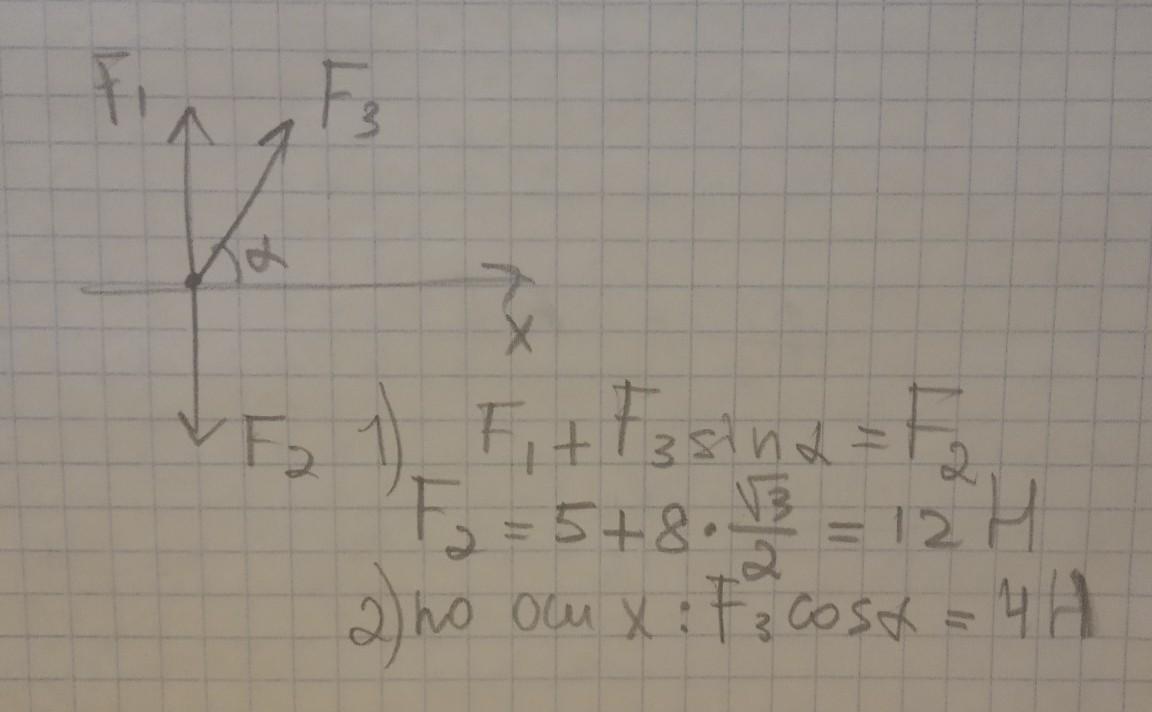 F₁ F₃
α
x
F₂ 1) F₁ + F₃ sin α = F₂
F₂ = 5 + 8 · √3/2 = 12 Н
2) по оси x : F₃ cos α = 4 Н